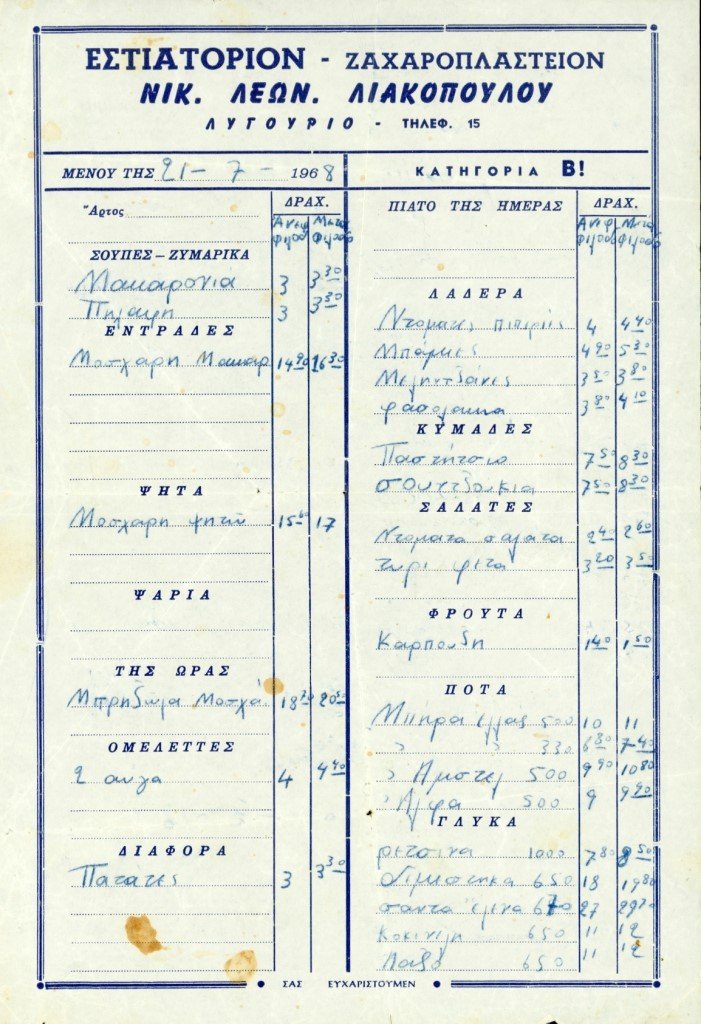 ΕΣΤΙΑΤΟΡΙΟΝ - ΖΑΧΑΡΟΠΛΑΣΤΕΙΟΝ
ΝΙΚ. ΛΕΩΝ. ΛΙΑΚΟΠΟΥΛΟΥ
ΛΥΓΟΥΡΙΟ - ΤΗΛΕΦ. 15
ΜΕΝΟΥ ΤΗΣ 21 - 7 - 1968
ΚΑΤΗΓΟΡΙΑ Β!
Ἄρτος
ΔΡΑΧ.
ΣΟΥΠΕΣ – ΖΥΜΑΡΙΚΑ
Μακαρονια 3 3 30
Πηλαφη 3 3 30
ΕΝΤΡΑΔΕΣ
Μοσχαρη Μακαρ 14 90 16 30
ΨΗΤΑ
Μοσχαρη ψητών 15 60 17
ΨΑΡΙΑ
ΤΗΣ ΩΡΑΣ
Μπρηδωλα Μοσχά. 18 20 50
ΟΜΕΛΕΤΤΕΣ
2 αυγα 4 4 40
ΔΙΑΦΟΡΑ
Πατατες 3 3 30
ΠΙΑΤΟ ΤΗΣ ΗΜΕΡΑΣ
ΔΡΑΧ.
ΛΑΔΕΡΑ
Ντοματες πιπεριές 4 4 40
Μπάμιες 4 90 5 30
Μεληντζάνες 3 50 3 80
φασολακια 3 80 4 10
ΚΥΜΑΔΕΣ
Παστήτσιο 7 50 8 30
σουτζουκια 7 50 8 30
ΣΑΛΑΤΕΣ
Ντοματα σαλατα 2 40 2 60
τυρι φετα 3 20 3 50
ΦΡΟΥΤΑ
Καρπουδη 1 40 1 50
ΠΟΤΑ
Μπηρα έλλάς 500 10 11
» » 330 6 80 7 40
» Αμστελ 500 9 90 10 80
» Αλφα 500 9 9 90
ΓΛΥΚΑ
ρετσινα 1000 7 80 8 50
διμεστηκα 650 18 19 80
σαντα έλενα 670 27 29 70
Κοκινελη 650 11 12
Ροζέ 650 11 12
ΣΑΣ ΕΥΧΑΡΙΣΤΟΥΜΕΝ